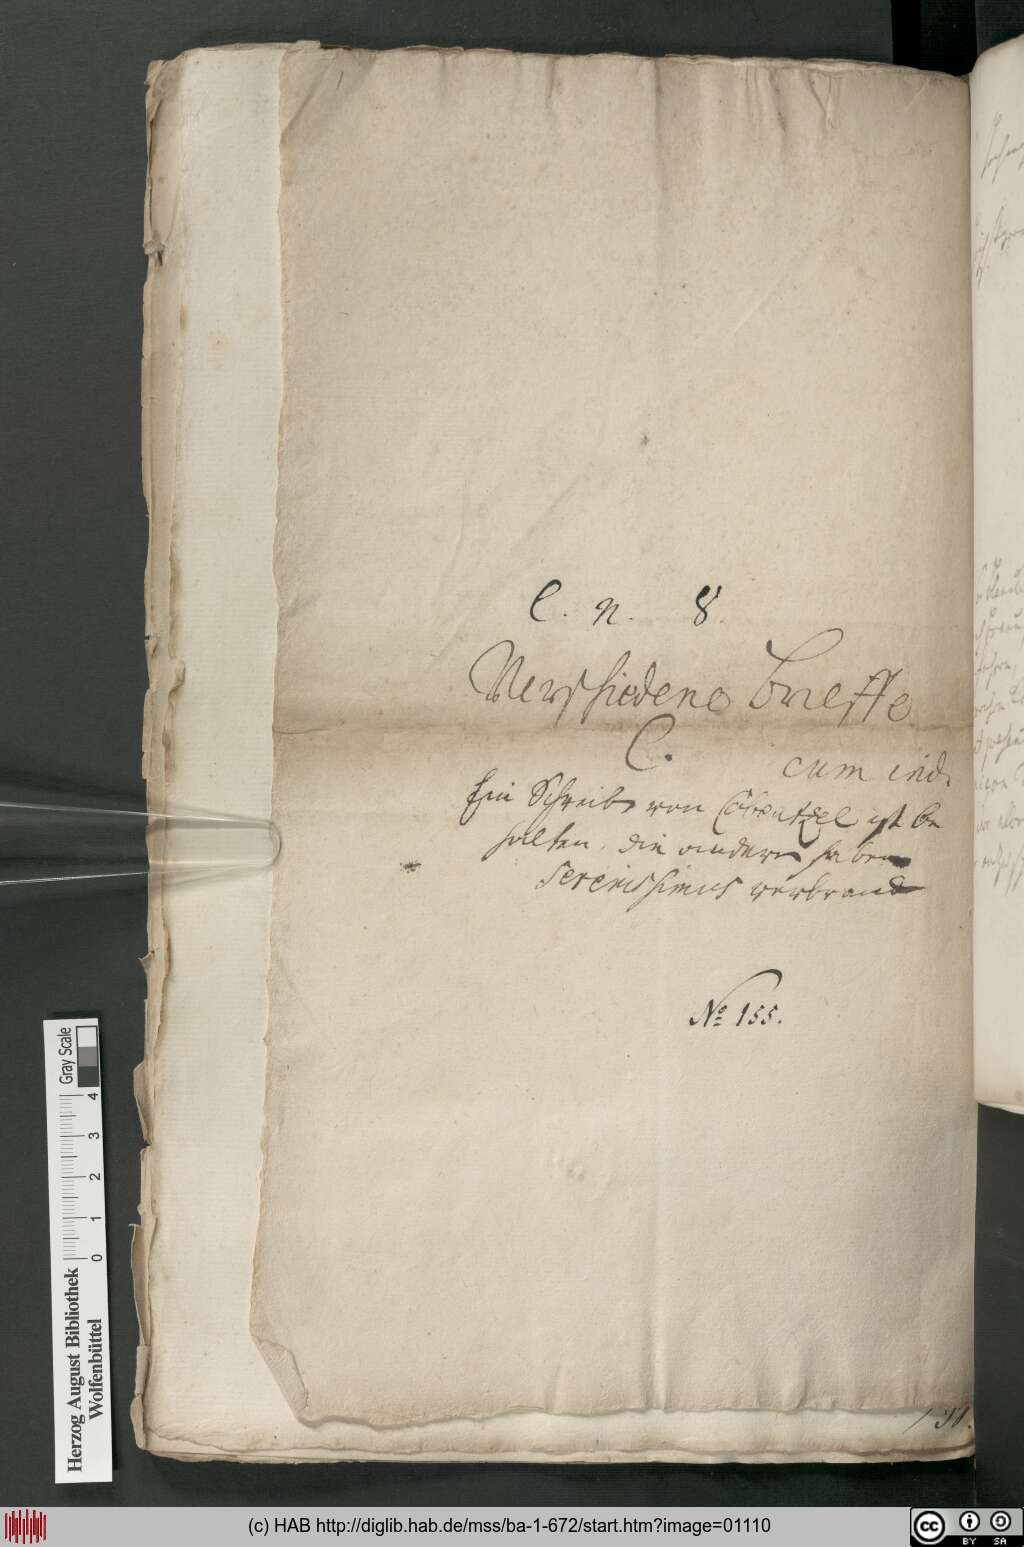 C. n. 8.
Verschiedene brieffe
C.
cum ind.
Ein Schreib von Cobentzel ist be
halten, die andern haben
Serenissimus verbrand
No 155.
Gray Scale
0 1 2 3 4
Herzog August Bibliothek
Wolfenbüttel
(c) HAB http://diglib.hab.de/mss/ba-1-672/start.htm?image=01110
cc BY SA